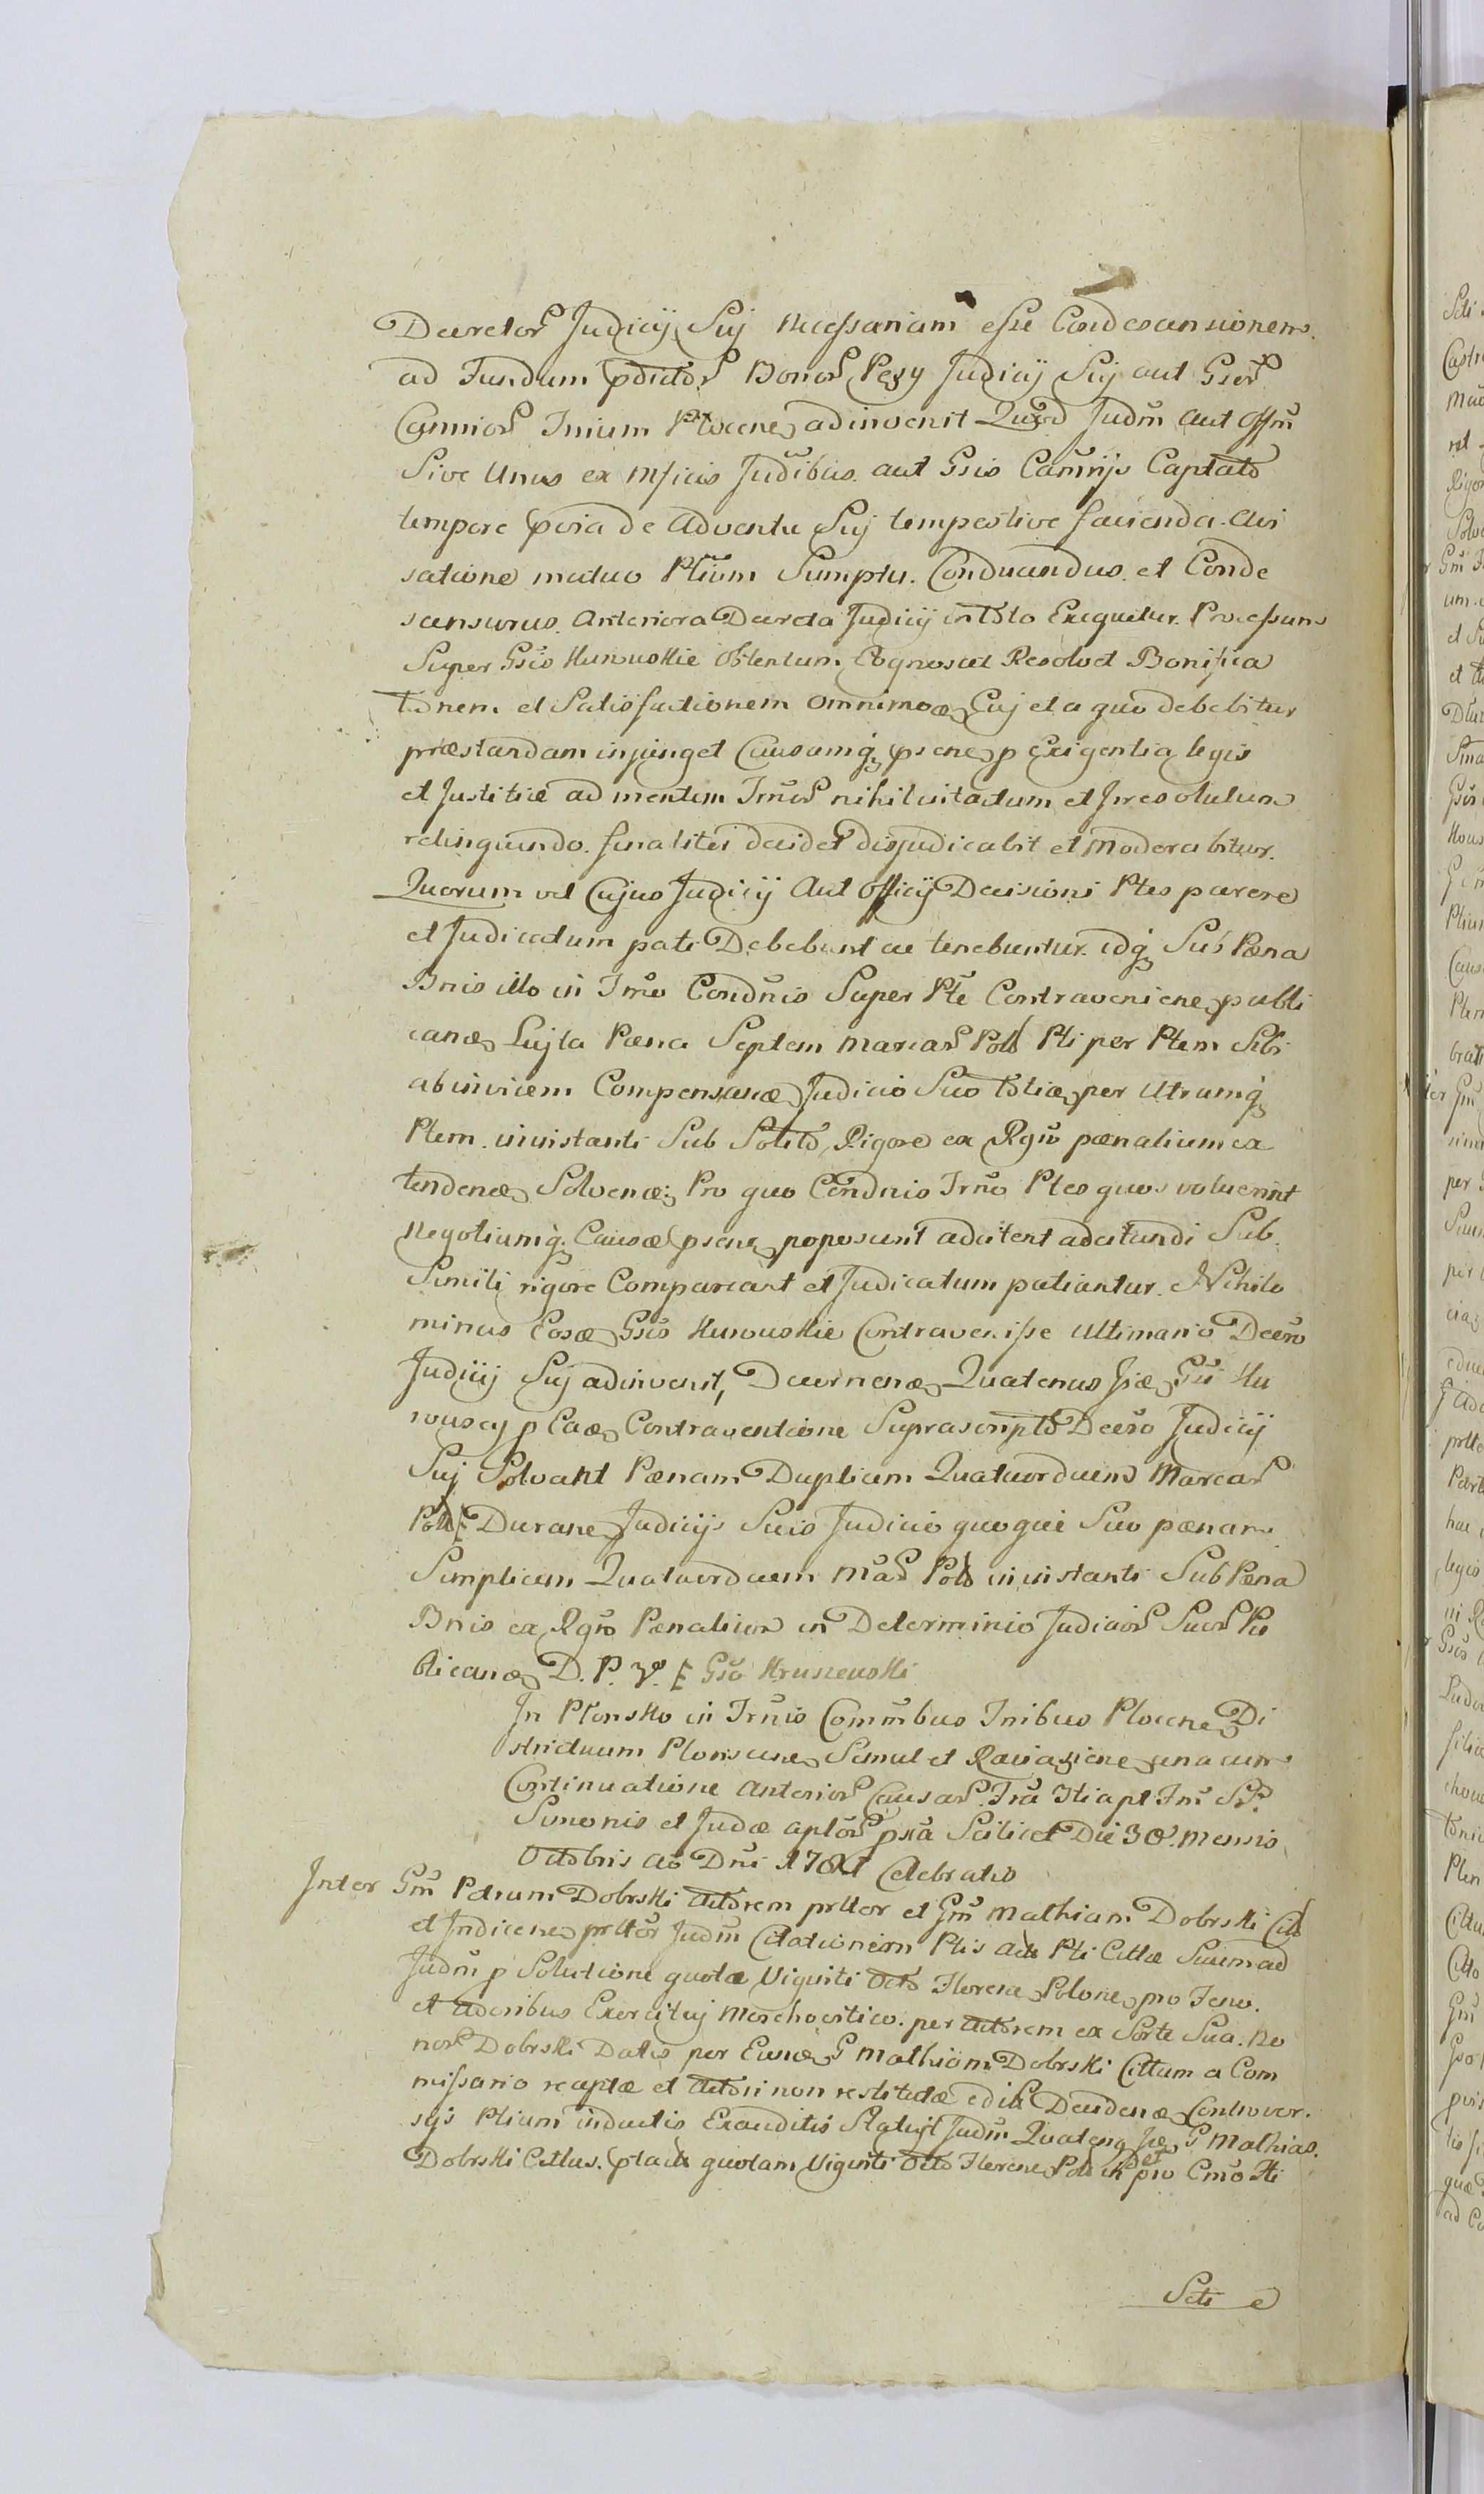 Decretor Judicij Suj Necessariam esse Condescensionem
ad Fundum pdictor Bonor Pexy Judicij Suj aut Gser
Camrior Trium Plocene adinvenit Quod Judm aut Offm
Sive Unus ex Msicis Judibus aut Gsis Camrijs Captato
tempore pvia de Adventu Suj tempestive facienda Avi
satione mutuo Ptium Sumptu. Conducendus et Conde
scensurus Anteriora Decreta Judicij in toto Exequetur. Processum
Super Gsis Kunuskie Obtentum Cognoscet Resolvet Bonifica
tionem et Satisfactionem omnimoæ Cuj et a quo debebitur
præstandam injunget Causamq psene p Exigentia legis
et Justitiæ ad mentem Trmor nihil intactum et Irresolutum
relinquendo finaliter decidet disjudicabit et Moderabitur.
Quorum vel Cujus Judicij Aut Officij Decisioni Ptes parere
et Judicatum pati Debebunt ac tenebuntur idq Sub Pæna
Bnis illo in Trmo Condnis Super Pte Contraveniene publi
canæ Lujta Pæna Septem Marcar Pol Pti per Ptem Sibi
ab invicem Compensanæ Judicio Suo totiæ per Utramq
Ptem in instanti Sub Solito Rigore ex Rgro pænalium ex
tendenæ Solvenæ; Pro quo Condnis Trmo Ptes quos voluerint
Negotiumq Causæ psene poposcerit adcitent adcitandi Sub
Simili rigore Compareant et Judicatum patiantur. Nihilo
minus Eosæ Gsis Kunuskie Contravenisse Ultimario Decro
Judicij Suj adinvenit, Decernenæ Quatenus Jiæ Gsi Ku
nuscy p Eaæ Contraventione Suprascripto Decro Judicij
Suj Solvant Pænam Duplicem Quatuordecem Marcar
Pol Durane Judicijs Suis Judicio quoque Suo pænam
Simplicem Quatuordecem Mar Pol in instanti Sub Pæna
Bnis ex Rgro Pænalium in Determinio Judicior Suor Pu
blicanæ D. P. V. Gso Kruszewski
In Plonsko in Trmis Commbus Tribus Plocene Di
strictuum Plonscene Simul et Raciaziene una cum
Continuatione Anterior Causar
Simonis et Judæ aptor pxa Scilicet Die 30 Mensis
Octobris Ao Dni 1781 Celebratis
Inter Gm Petrum Dobrski Actorem prltor et Gm Mathiam Dobrski Cit
et Indicene prltor Judm Citationem Ptis Act Pti Cittæ Suum ad
Judm p Solutione quotæ Viginti Octo Florene Polone pro Feno
et Avenibus Exercituj Moschovitico per Actorem ex Sorte Sua Bo
nor Dobrski Datis per Eunæ G Mathiam Dobrski Cittum a Com
missario receptæ et Actori non restitutæ edit Decidenæ Controver
sijs Ptium inductis Exauditis Statuit Judm Quatenq Jiæ G Mathias
Dobrski Cittus ptact quotam Viginti Octo Florene Pol in et pro Cmo Iti
Scti